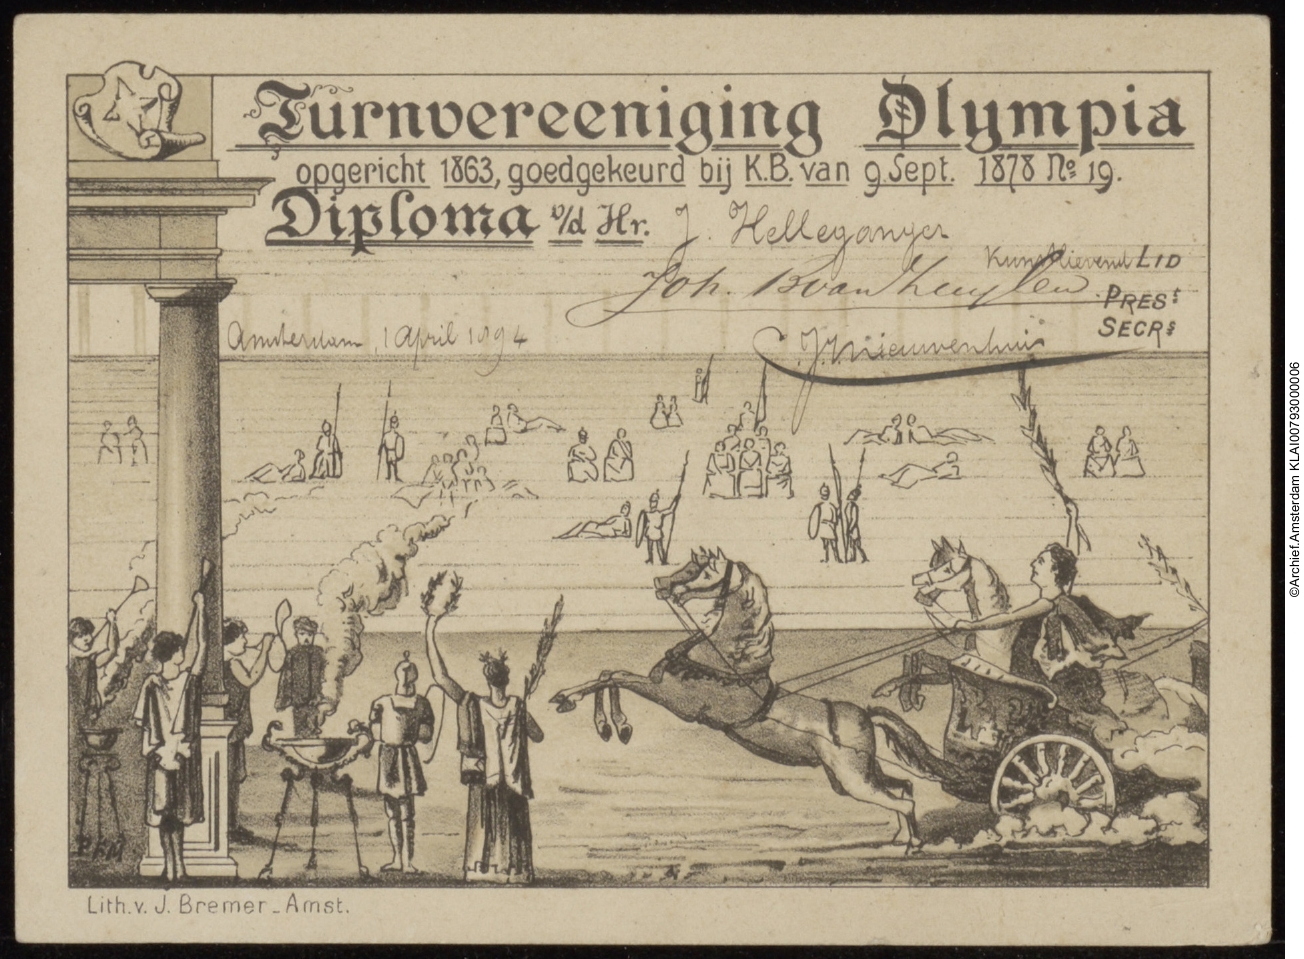 Turnvereeniging Olympia
opgericht 1863, goedgekeurd bij K.B. van 9 Sept. 1878 No 19.
Diploma v/d Hr. J. Helleganger
Kunstlievend LID
Joh. B van Heuylen PRESt
SECRs
Amsterdam, 1 April 1894
J. Nieuwenhuis
PFM
Lith. v. J. Bremer - Amst.
©Archief.Amsterdam KLAI00793000006